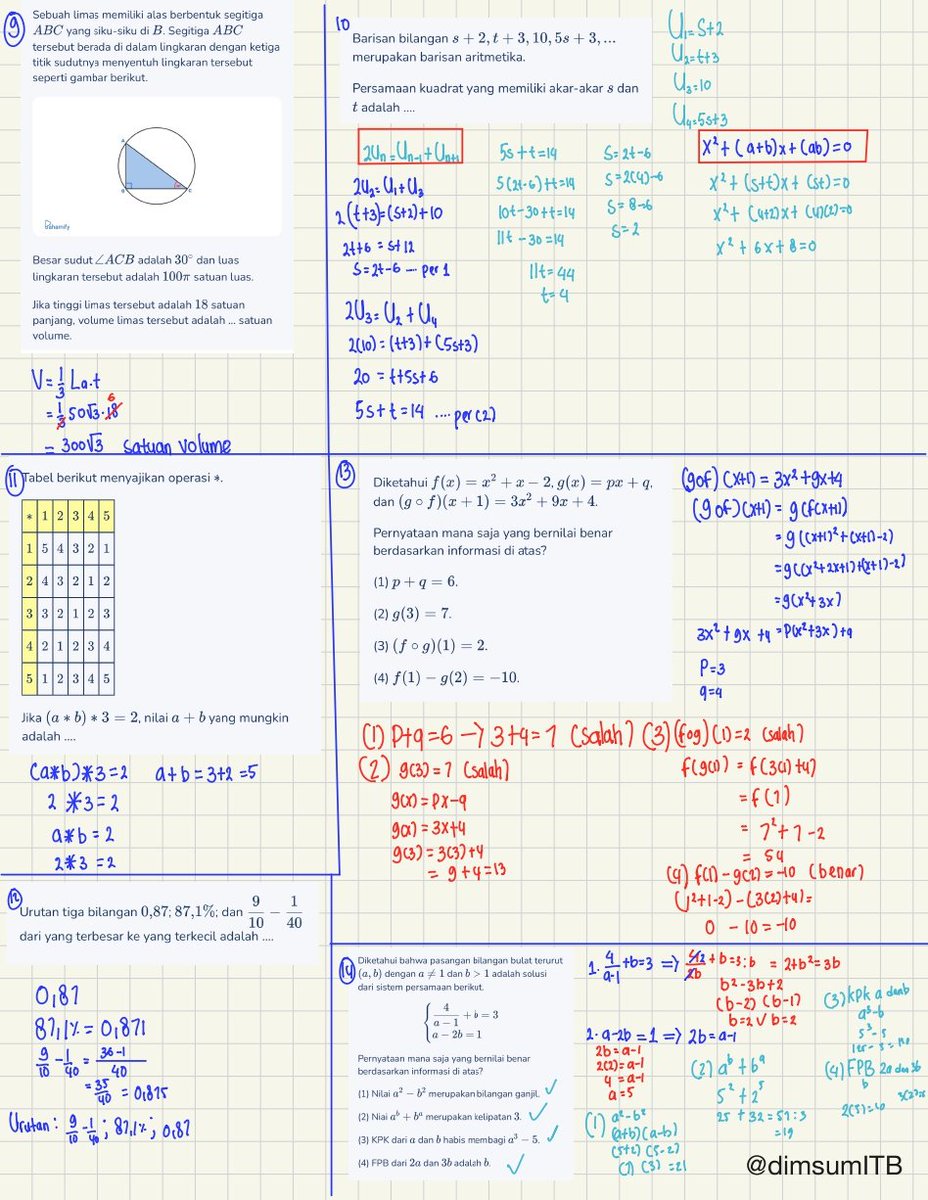 9
Sebuah limas memiliki alas berbentuk segitiga
ABC yang siku-siku di B. Segitiga ABC
tersebut berada di dalam lingkaran dengan ketiga
titik sudutnya menyentuh lingkaran tersebut
seperti gambar berikut.
A
B
C
Pahamify
Besar sudut ∠ACB adalah 30° dan luas
lingkaran tersebut adalah 100π satuan luas.
Jika tinggi limas tersebut adalah 18 satuan
panjang, volume limas tersebut adalah ... satuan
volume.
V = 1/3 La.t
= 1/3 50√3 . 18 6
= 300√3 satuan volume
10
Barisan bilangan s + 2, t + 3, 10, 5s + 3, ...
merupakan barisan aritmetika.
Persamaan kuadrat yang memiliki akar-akar s dan
t adalah ....
U₁ = S+2
U₂ = t+3
U₃ = 10
U₄ = 5s+3
2Un = Un-1 + Un+1
2U₂ = U₁ + U₃
2(t+3) = (s+2) + 10
2t+6 = s+12
S = 2t-6 ... per 1
2U₃ = U₂ + U₄
2(10) = (t+3) + (5s+3)
20 = t+5s+6
5s+t = 14 .... per (2)
5s+t = 14
5(2t-6)+t = 14
10t-30+t = 14
11t-30 = 14
11t = 44
t = 4
S = 2t-6
S = 2(4)-6
S = 8-6
S = 2
x² + (a+b)x + (ab) = 0
x² + (s+t)x + (st) = 0
x² + (4+2)x + (4)(2) = 0
x² + 6x + 8 = 0
11
Tabel berikut menyajikan operasi *.
* 1 2 3 4 5
1 5 4 3 2 1
2 4 3 2 1 2
3 3 2 1 2 3
4 2 1 2 3 4
5 1 2 3 4 5
Jika (a * b) * 3 = 2, nilai a + b yang mungkin
adalah ....
(a*b)*3 = 2 a+b = 3+2 = 5
2 * 3 = 2
a*b = 2
2*3 = 2
13
Diketahui f(x) = x² + x − 2, g(x) = px + q,
dan (g ∘ f)(x + 1) = 3x² + 9x + 4.
Pernyataan mana saja yang bernilai benar
berdasarkan informasi di atas?
(1) p + q = 6.
(2) g(3) = 7.
(3) (f ∘ g)(1) = 2.
(4) f(1) − g(2) = −10.
(gof)(x+1) = 3x²+9x+4
(gof)(x+1) = g(f(x+1)
= g((x+1)²+(x+1)-2)
= g((x²+2x+1)+(x+1)-2)
= g(x²+3x)
3x²+9x+4 = P(x²+3x)+q
P = 3
q = 4
(1) P+q = 6 → 3+4 = 7 (salah)
(2) g(3) = 7 (salah)
g(x) = px-q
g(x) = 3x+4
g(3) = 3(3)+4
= 9+4 = 13
(3) (fog)(1) = 2 (salah)
f(g(1)) = f(3(1)+4)
= f(7)
= 7²+7-2
= 54
(4) f(1) - g(2) = -10 (benar)
(1²+1-2) - (3(2)+4) =
0 - 10 = -10
12
Urutan tiga bilangan 0,87; 87,1%; dan 9/10 − 1/40
dari yang terbesar ke yang terkecil adalah ....
0,87
87,1% = 0,871
9/10 - 1/40 = 36-1/40
= 35/40 = 0,875
Urutan : 9/10 - 1/40 ; 87,1% ; 0,87
14
Diketahui bahwa pasangan bilangan bulat terurut
(a, b) dengan a ≠ 1 dan b > 1 adalah solusi
dari sistem persamaan berikut.
4/(a − 1) + b = 3
a − 2b = 1
Pernyataan mana saja yang bernilai benar
berdasarkan informasi di atas?
(1) Nilai a² − b² merupakan bilangan ganjil. ✓
(2) Niai aᵇ + bᵃ merupakan kelipatan 3. ✓
(3) KPK dari a dan b habis membagi a³ − 5. ✓
(4) FPB dari 2a dan 3b adalah b. ✓
1. 4/a-1 + b = 3 ⇒ 4 2/2b + b = 3 : b = 2+b² = 3b
b²-3b+2
(b-2) (b-1)
b = 2 V b = 2
2. a-2b = 1 ⇒ 2b = a-1
2b = a-1
2(2) = a-1
4 = a-1
a = 5
(1) a²-b²
(a+b)(a-b)
(5+2) (5-2)
(7) (3) = 21
(2) aᵇ + bᵃ
5² + 2⁵
25 + 32 = 57 : 3
= 19
(3) KPK a dan b
a³-b
5³-5
(4) FPB 2a dan 3b
b
@dimsumITB